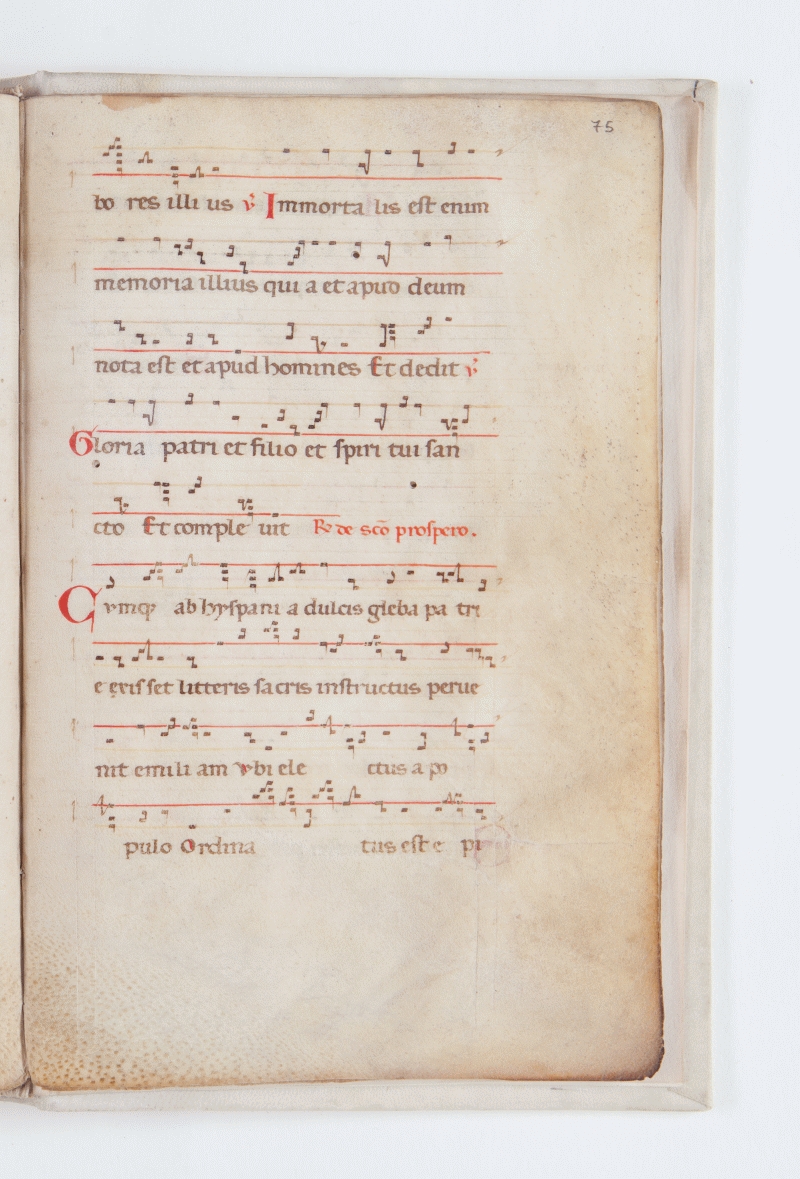 75
bo res illi us ℣ Immorta lis est enim
memoria illius qui a et apud deum
nota est et apud homines Et dedit ℣
Gloria patri et filio et spiri tui san
cto Et comple uit Re de sco prospero.
Cvmq; ab hyspani a dulcis gleba pa tri
e exisset litteris sacris instructus perue
nit emili am vbi ele ctus a po
pulo Ordina tus est e pi